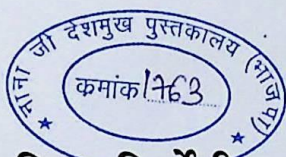 नाना जी देशमुख पुस्तकालय (भाजपा)
कमांक 1763